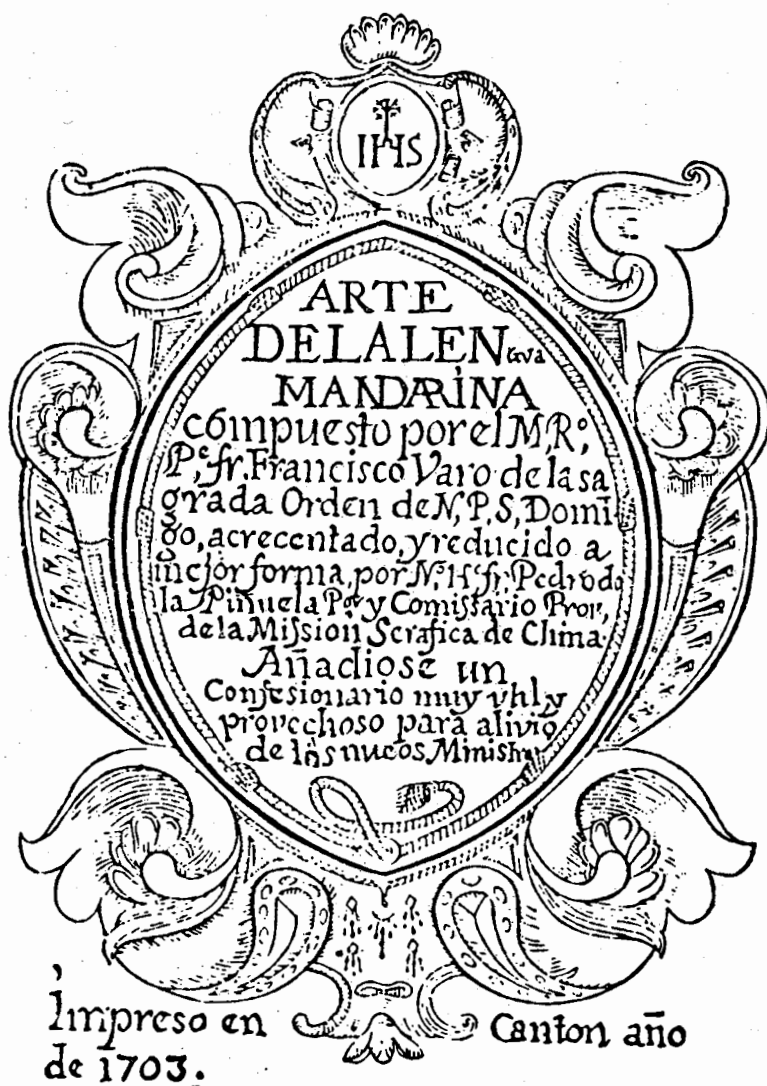 IHS
ARTE
DELALENgva
MANDARINA
cómpuesto por el M,R,º,
P,e fr. Francisco Varo de la sa
grada Orden de N,P,S, Domĩ
go, acrecentado, y reducido a
mejor forma, por N,º H,º fr, Pedro de
la Piñuela Por y Comissario Prov,
de la Mission Serafica de China.
Añadiose un
Confesionario muy vtil, y
provechoso para alivio
de los nueos Ministros
Impreso en Canton año
de 1703.